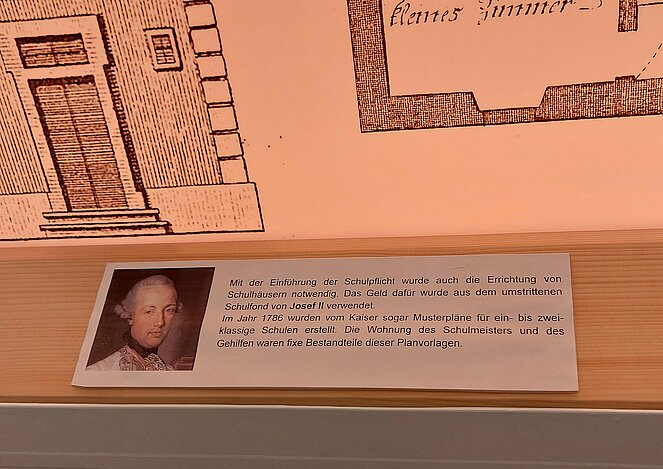 kleines Zimmer
Mit der Einführung der Schulpflicht wurde auch die Errichtung von
Schulhäusern notwendig. Das Geld dafür wurde aus dem umstrittenen
Schulfond von Josef II verwendet.
Im Jahr 1786 wurden vom Kaiser sogar Musterpläne für ein- bis zwei-
klassige Schulen erstellt. Die Wohnung des Schulmeisters und des
Gehilfen waren fixe Bestandteile dieser Planvorlagen.